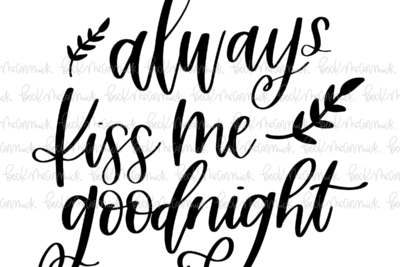 always
kiss me
goodnight